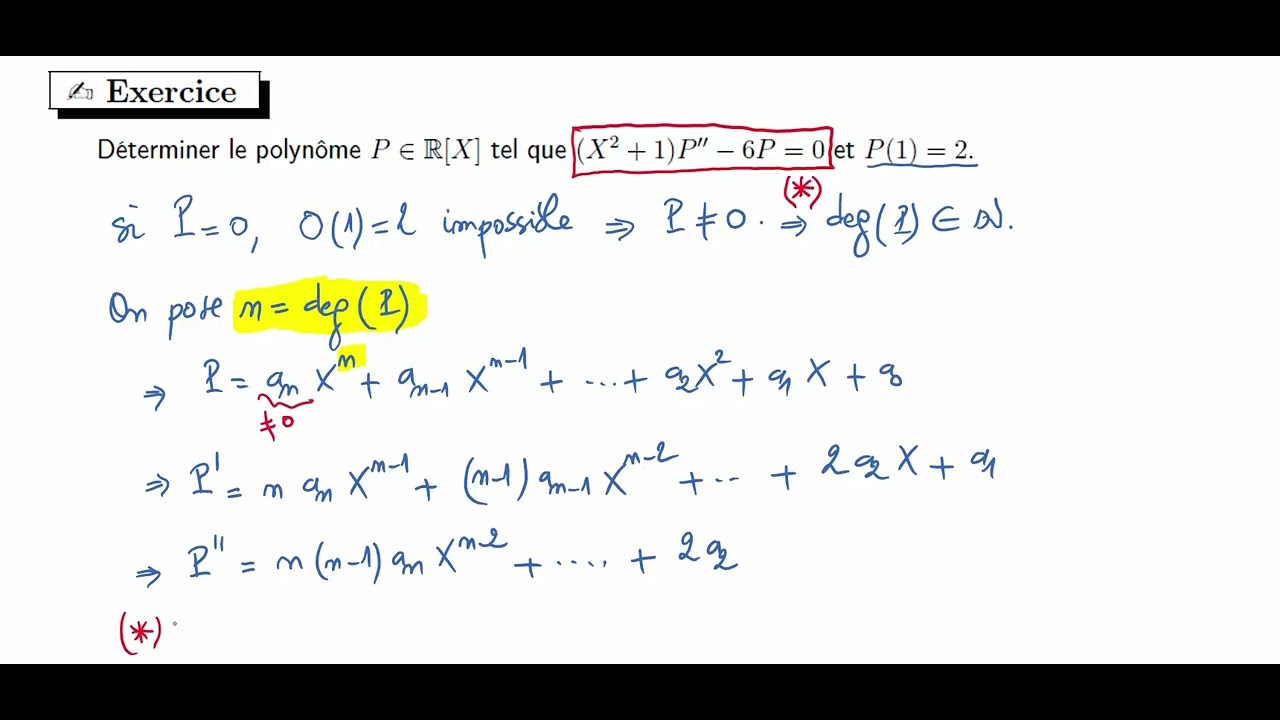 ✍ Exercice
Déterminer le polynôme P ∈ ℝ[X] tel que (X² + 1)P″ − 6P = 0 et P(1) = 2.
(*)
si P = 0, 0(1) = 2 impossible ⇒ P ≠ 0. ⇒ deg(P) ∈ ℕ.
On pose n = deg(P)
⇒ P = aₙ Xⁿ + aₙ₋₁ Xⁿ⁻¹ + ... + a₂X² + a₁ X + a₀
≠ 0
⇒ P' = n aₙ Xⁿ⁻¹ + (n-1) aₙ₋₁ Xⁿ⁻² + ... + 2a₂ X + a₁
⇒ P'' = n(n-1) aₙ Xⁿ⁻² + .... + 2a₂
(*)